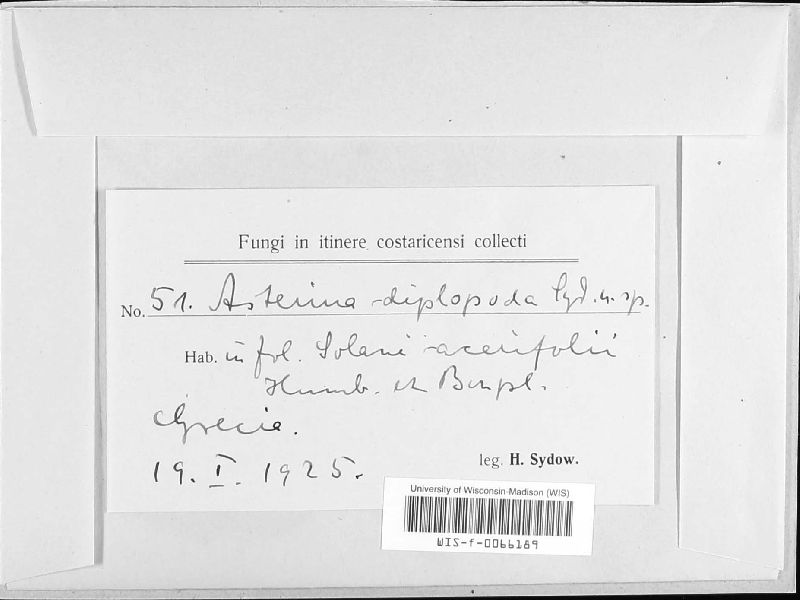 Fungi in itinere costaricensi collecti
No. 51. Asterina diplopoda Syd. n. sp.
Hab. in fol. Solani acerifolii
Humb. et Bonpl.
Grecia.
19. I. 1925.
leg. H. Sydow.
University of Wisconsin-Madison (WIS)
WIS-f-0066189